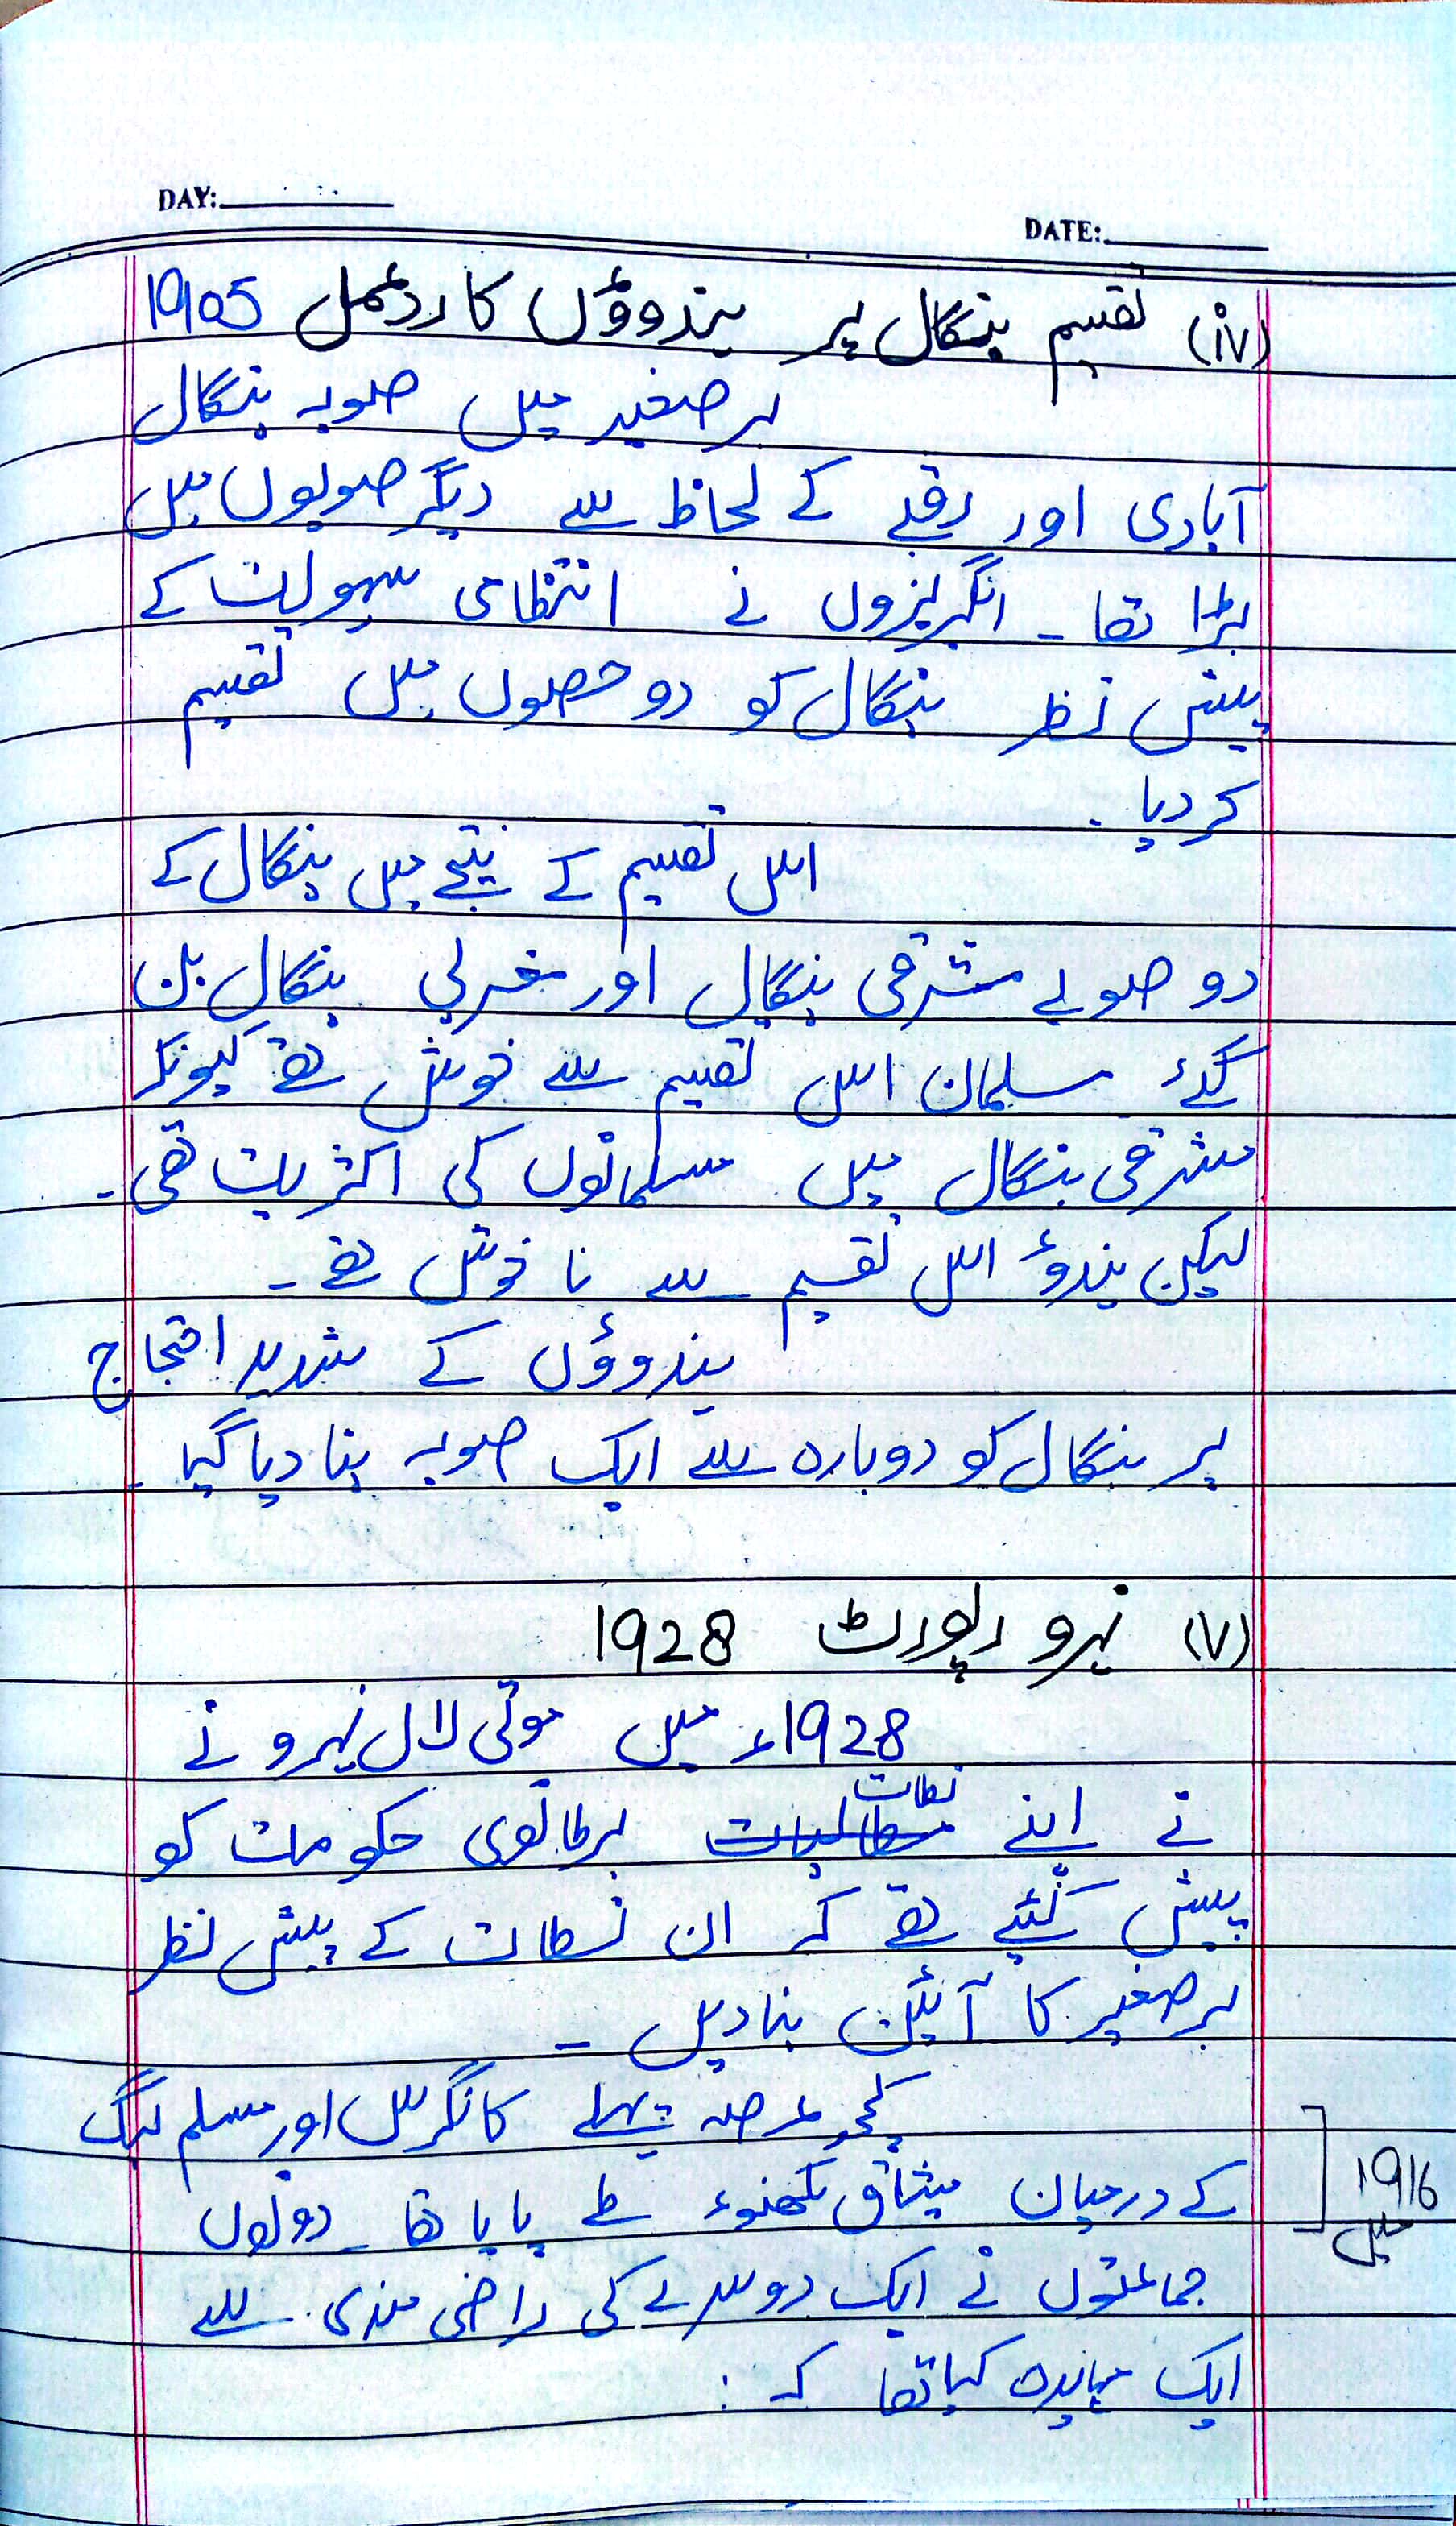 DAY:
DATE:
(iv) تقسیم بنگال پر ہندوؤں کا ردعمل 1905
برصغیر میں صوبہ بنگال
آبادی اور رقبے کے لحاظ سے دیگر صوبوں میں
بڑا تھا ۔ انگریزوں نے انتظامی سہولیت کے
پیش نظر بنگال کو دو حصوں میں تقسیم
کر دیا ۔
اس تقسیم کے نتیجے میں بنگال کے
دو صوبے مشرقی بنگال اور مغربی بنگال بن
گئے مسلمان اس تقسیم سے خوش تھے کیونکہ
مشرقی بنگال میں مسلمانوں کی اکثریت تھی ۔
لیکن ہندوؤ اس تقسیم سے نا خوش تھے ۔
ہندوؤں کے شدید احتجاج
پر بنگال کو دوبارہ سے ایک صوبہ بنا دیا گیا ۔
(v) نہرو رپورٹ 1928
1928ء میں موتی لال نہرو نے
نے اپنے مطالبات نکات برطانوی حکومت کو
پیش کئیے تھے کہ ان نکات کے پیش نظر
برصغیر کا آئین بنادیں ۔
کچھ عرصہ پہلے کانگرس اور مسلم لیگ
کے درمیان میثاق لکھنوء طے پایا تھا ۔ دونوں
1916 میں
جماعتوں نے ایک دوسرے کی راضی مندی سے
ایک معاہدہ کیا تھا کہ :